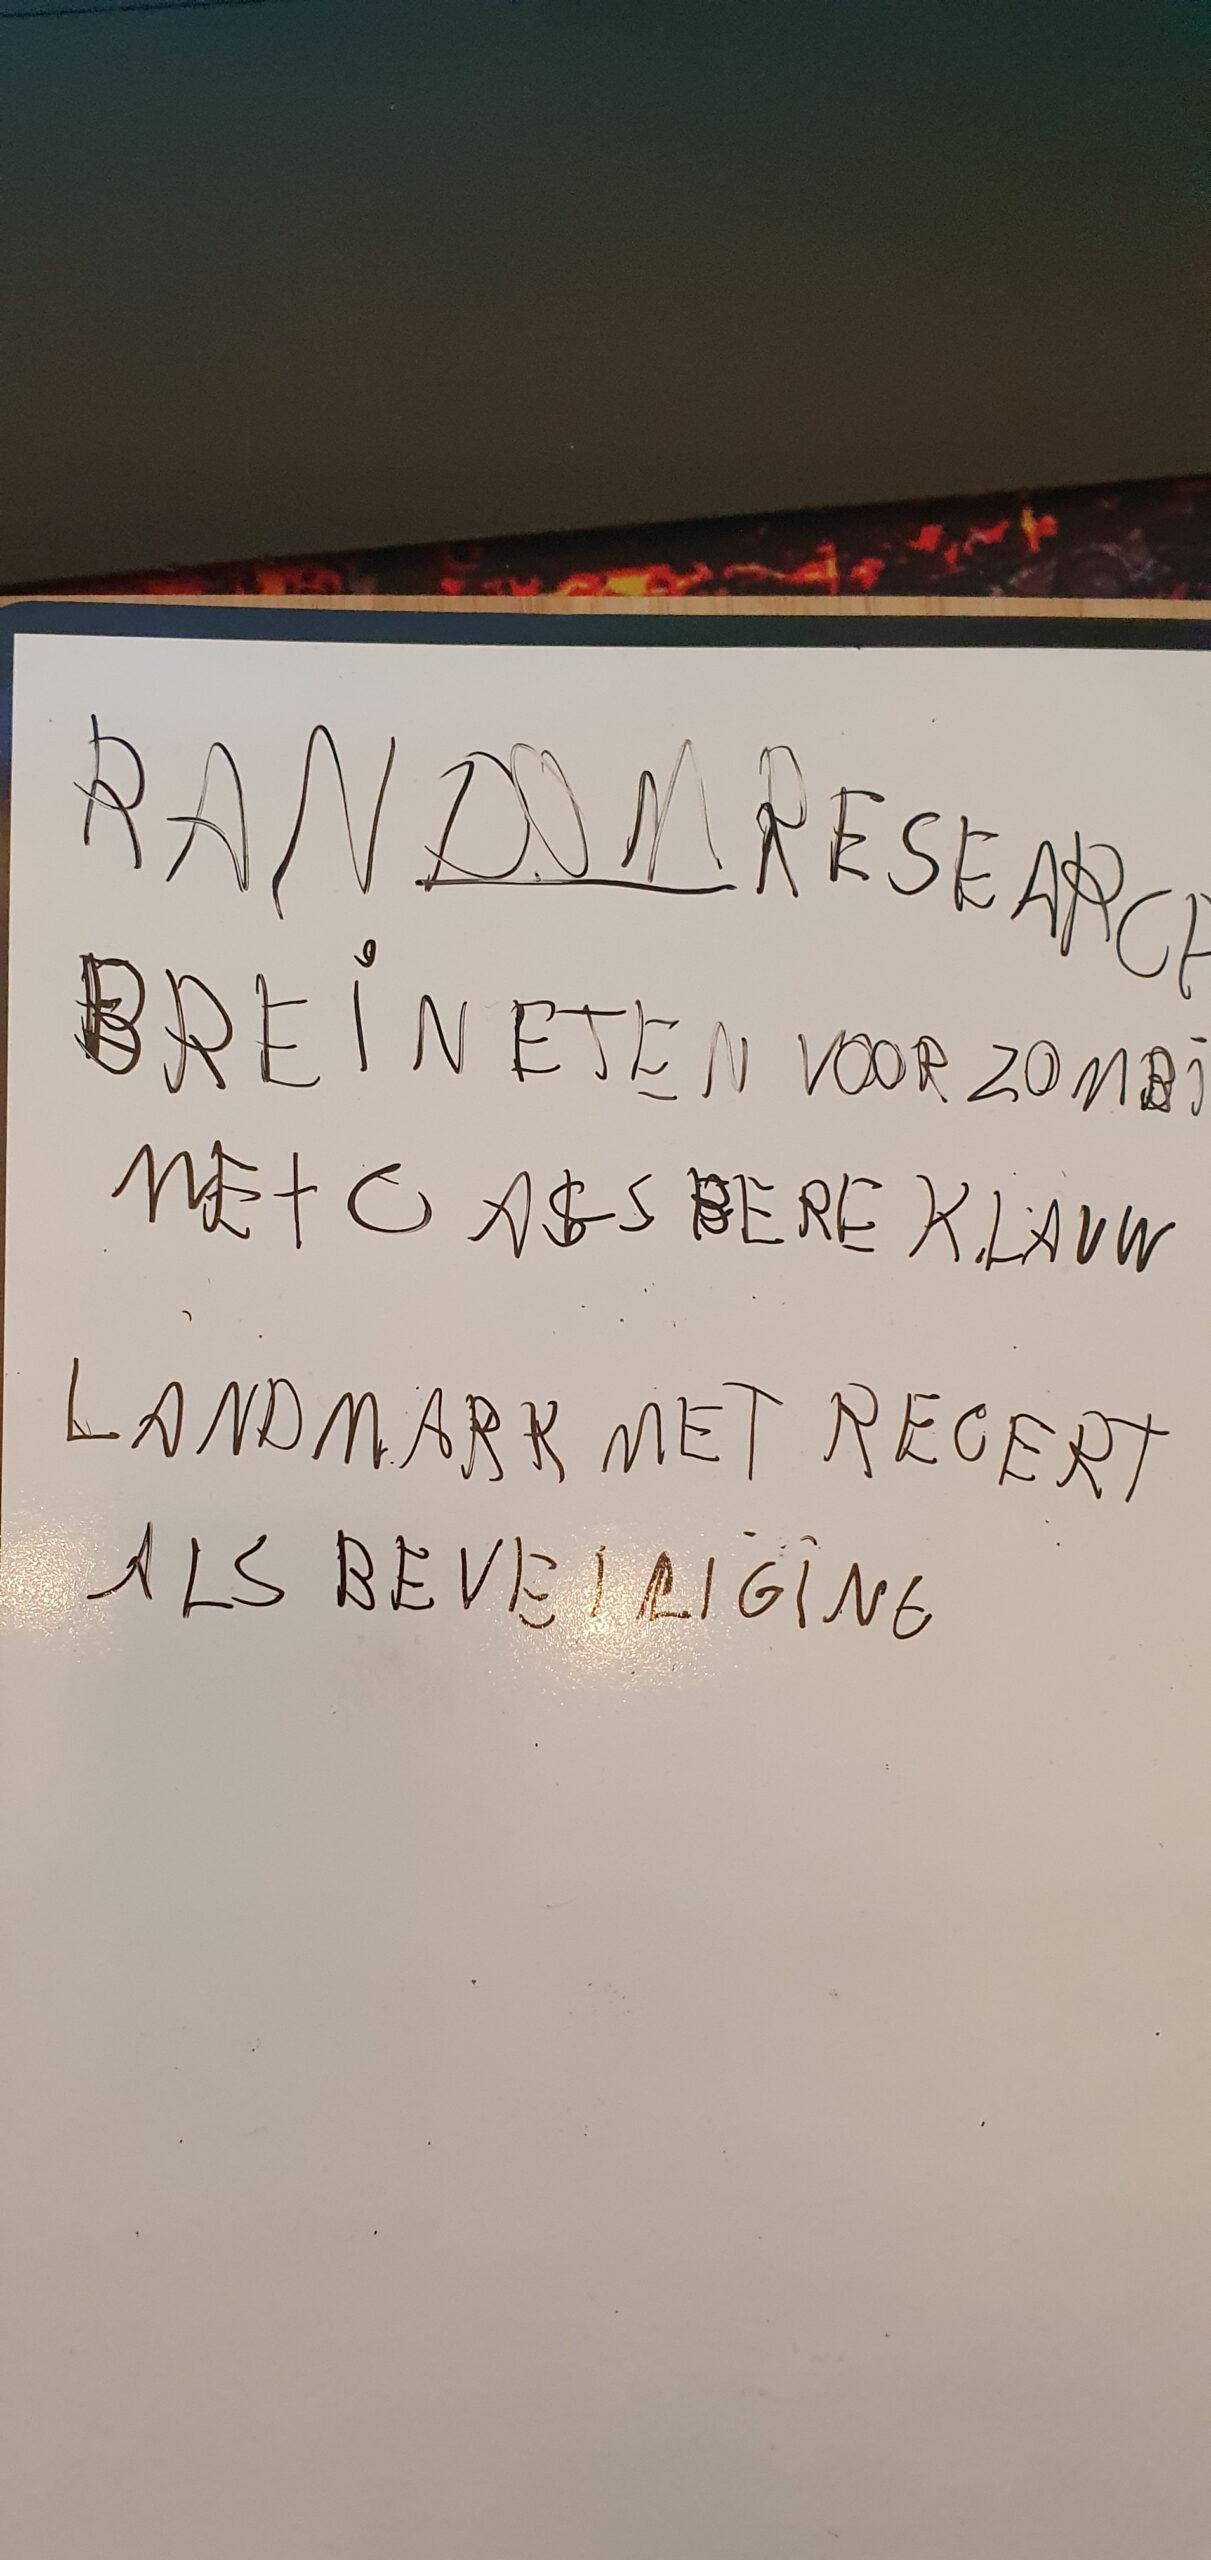 RANDOM RESEARCH
BREIN ETEN VOOR ZOMBI
MET ASS BEREKLAUW
LANDMARK MET RECERT
ALS BEVEILIGING